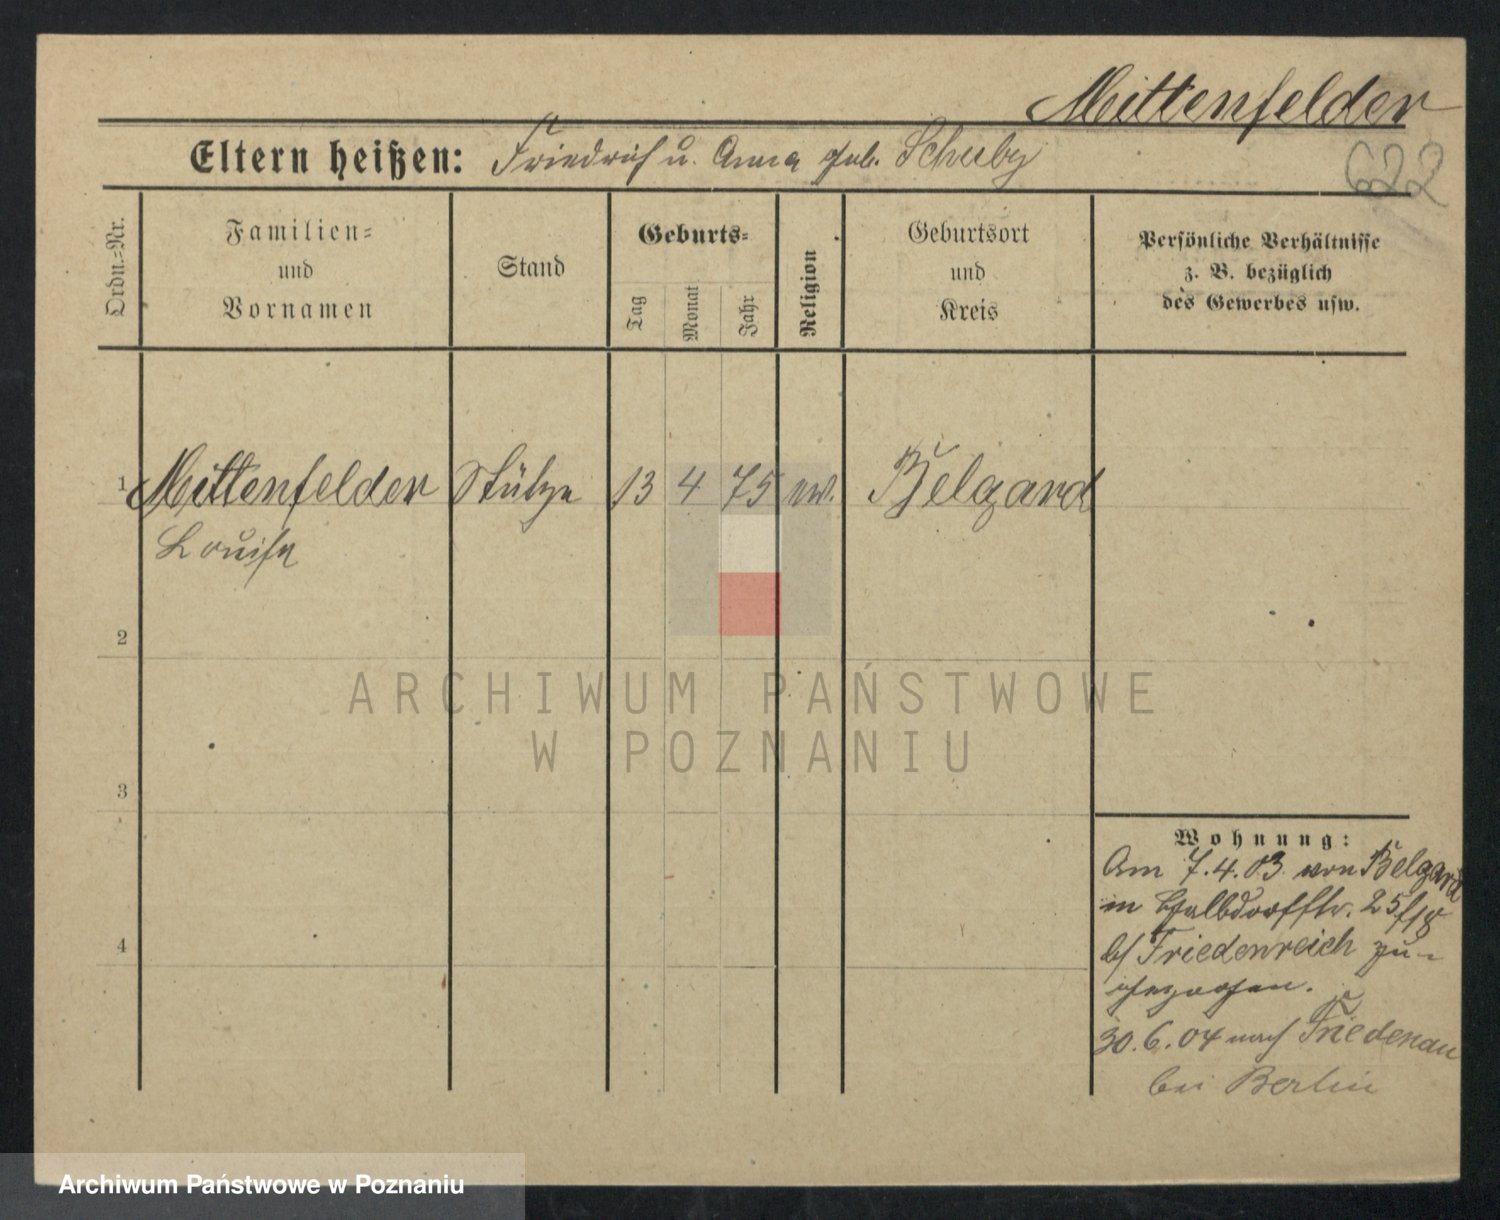 Mittenfelder
622
Eltern heißen: Friedrich u. Anna geb. Schuby
Ordn.-Nr.
Familien-
und
Vornamen
Stand
Geburts-
Tag
Monat
Jahr
Religion
Geburtsort
und
Kreis
Persönliche Verhältnisse
z. B. bezüglich
des Gewerbes usw.
1 Mittenfelder Stütze 13 4 75 ev. Belgard
Louise
2
3
4
ARCHIWUM PAŃSTWOWE
W POZNANIU
Wohnung:
Am 7.4.03 von Belgard
in Halbdorfstr. 25/
b/ Friedenreich zu-
gezogen.
30.6.04 nach Friedenau
bei Berlin
Archiwum Państwowe w Poznaniu